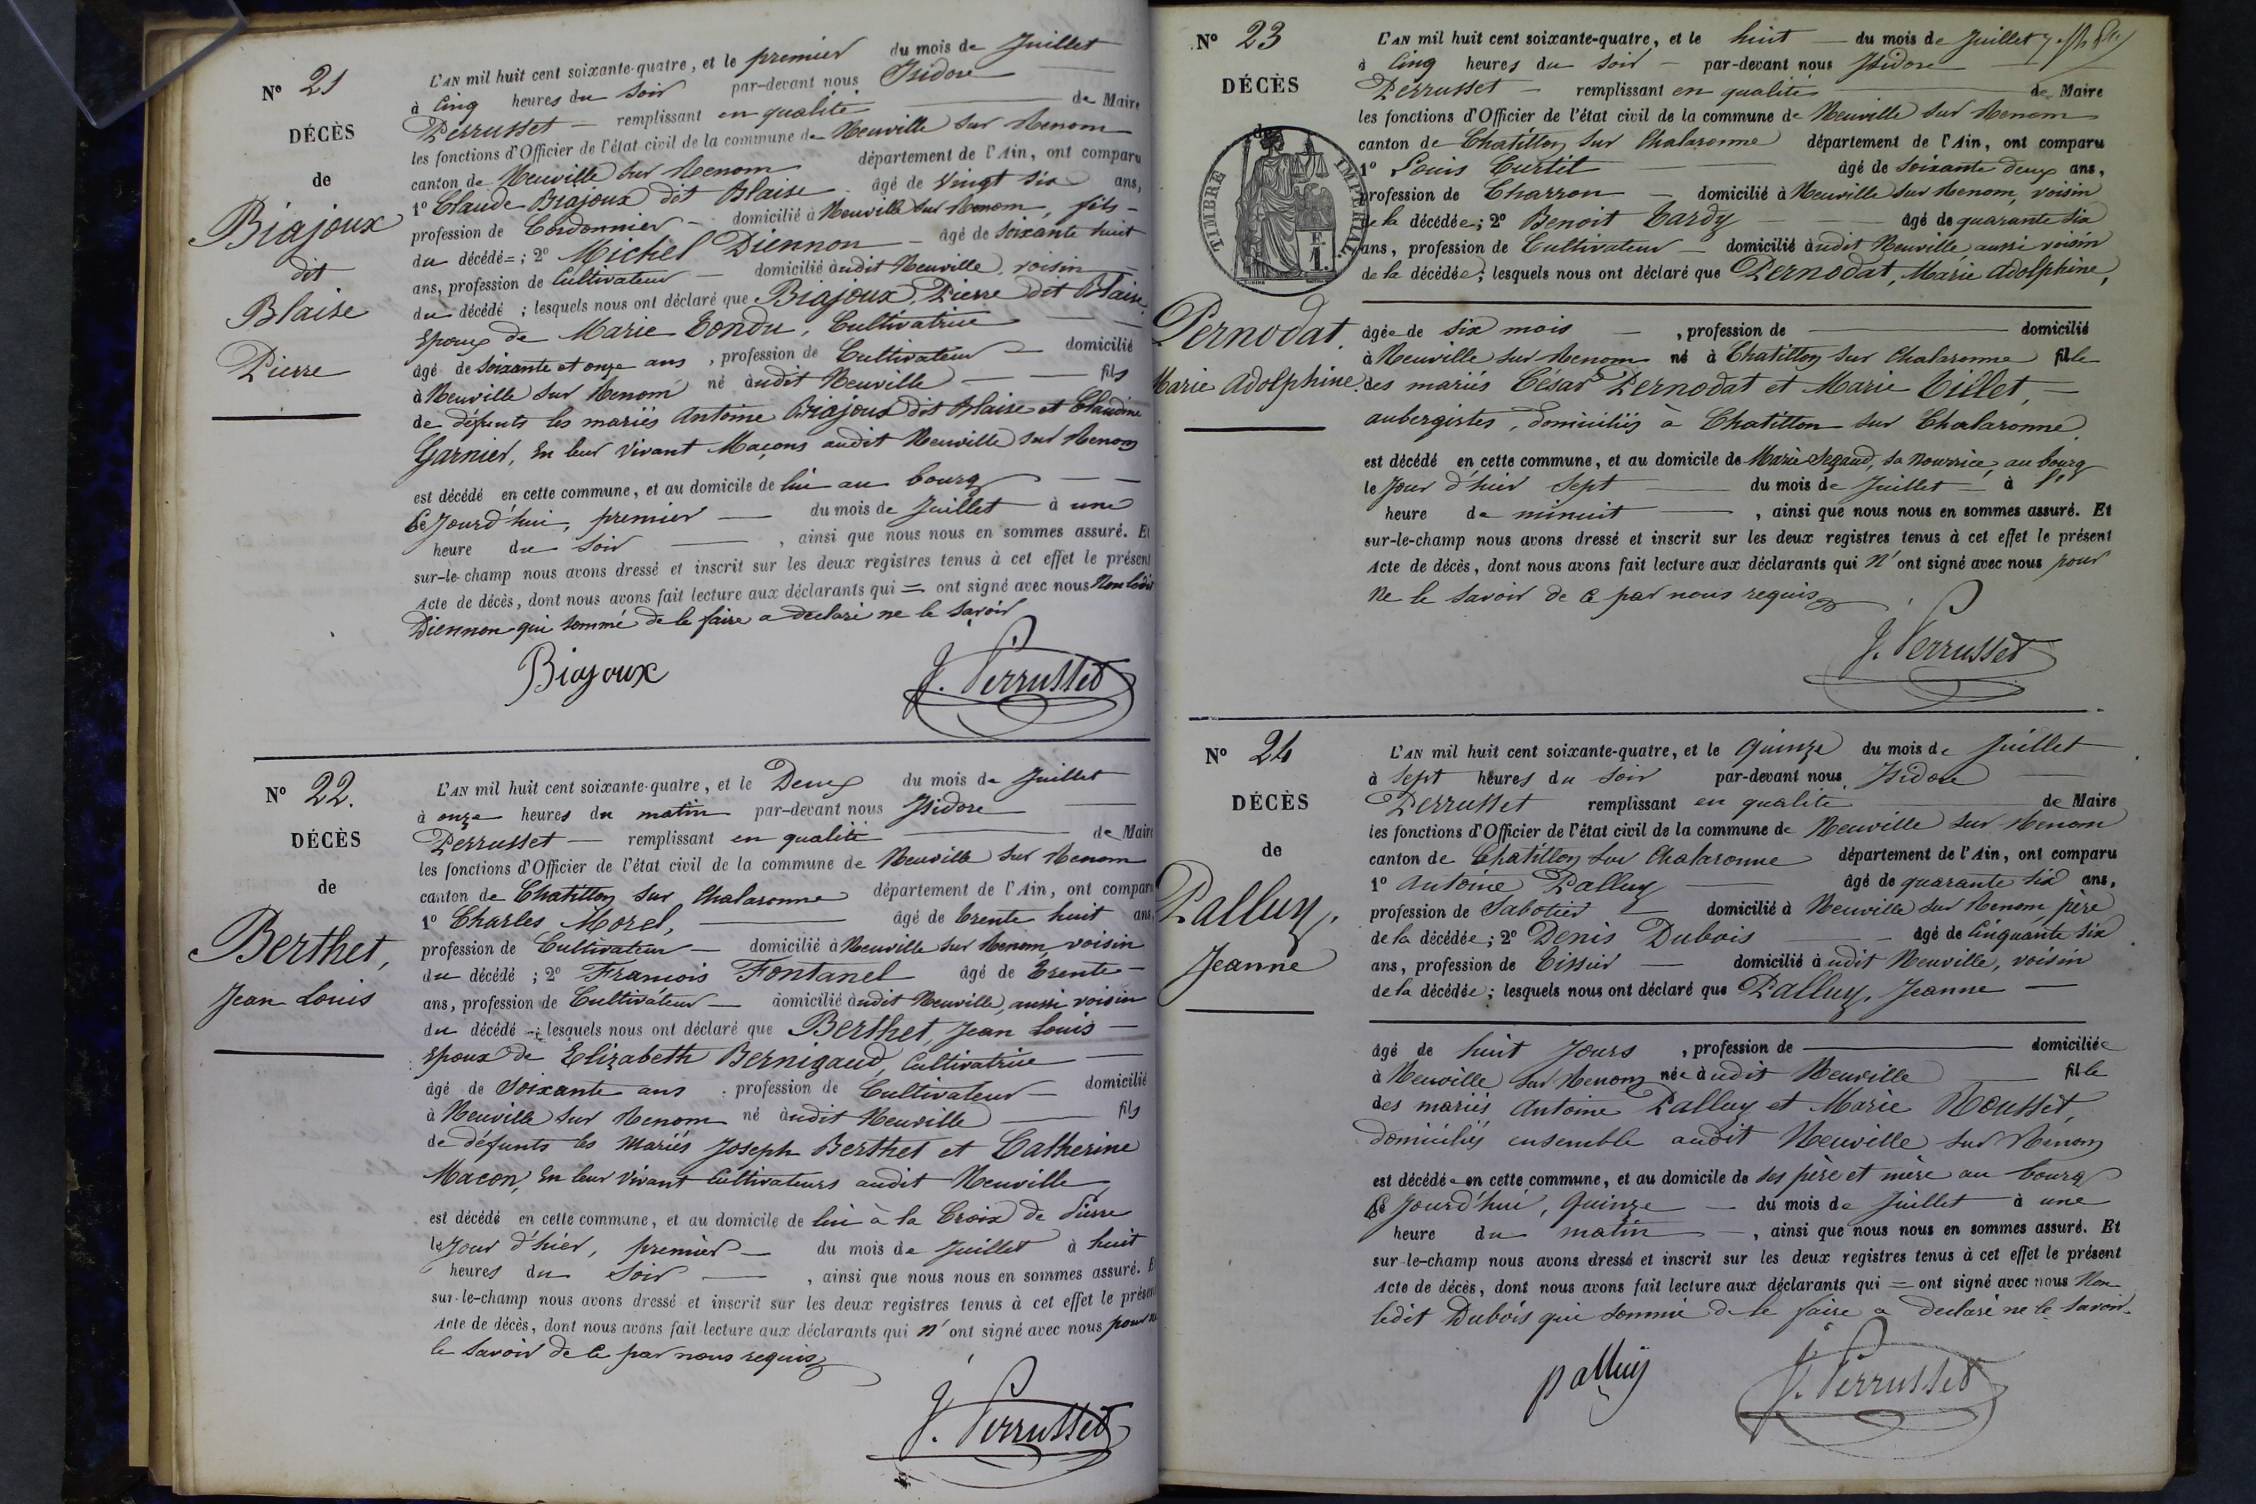 N° 21
DÉCÈS
de
Biajoux
dit
Blaise
Pierre
L'AN mil huit cent soixante-quatre, et le premier du mois de Juillet
à Cinq heures du Soir par-devant nous Isidore
Perrusset remplissant en qualité de Maire
les fonctions d'Officier de l'état civil de la commune de Neuville sur Renom
canton de Neuville sur Renom département de l'Ain, ont comparu
1° Claude Biajoux dit Blaise âgé de Vingt Six ans,
profession de Cordonnier domicilié à Neuville sur Renom, fils
du décédé ; 2° Michel Diennon âgé de Soixante huit
ans, profession de Cultivateur domicilié àudit Neuville, voisin
du décédé ; lesquels nous ont déclaré que Biajoux, Pierre dit Blaise,
Epoux de Marie Tondu, Cultivatrice
âgé de Soixante et onze ans, profession de Cultivateur domicilié
à Neuville sur Renom né àudit Neuville fils
de défunts les mariés Antoine Biajoux dit Blaise et Claudine
Garnier, En leur Vivant Maçons audit Neuville sur Renom
est décédé en cette commune, et au domicile de lui au bourg
Ce Jourd'hui, premier du mois de Juillet à une
heure du Soir, ainsi que nous nous en sommes assuré. Et
sur-le-champ nous avons dressé et inscrit sur les deux registres tenus à cet effet le présent
Acte de décès, dont nous avons fait lecture aux déclarants qui = ont signé avec nous Non ledit
Diennon qui Sommé de le faire a declaré ne le Savoir
Biajoux J. Perrusset
N° 22.
DÉCÈS
de
Berthet,
Jean Louis
L'AN mil huit cent soixante-quatre, et le Deux du mois de Juillet
à onze heures du matin par-devant nous Isidore
Perrusset remplissant en qualité de Maire
les fonctions d'Officier de l'état civil de la commune de Neuville sur Renom
canton de Chatillon sur Chalaronne département de l'Ain, ont comparu
1° Charles Morel, âgé de trente huit ans,
profession de Cultivateur domicilié à Neuville sur Renom, voisin
du décédé ; 2° Francois Fontanel âgé de Trente
ans, profession de Cultivateur domicilié àudit Neuville, aussi voisin
du décédé ; lesquels nous ont déclaré que Berthet, Jean Louis
Epoux de Elizabeth Bernigaud, Cultivatrice
âgé de Soixante ans, profession de Cultivateur domicilié
à Neuville sur Renom né àudit Neuville fils
de défunts les Mariés Joseph Berthet et Catherine
Macon, En leur Vivant Cultivateurs audit Neuville
est décédé en cette commune, et au domicile de lui à la Croix de Pierre
le Jour d'hier, premier du mois de Juillet à huit
heures du Soir, ainsi que nous nous en sommes assuré. Et
sur-le-champ nous avons dressé et inscrit sur les deux registres tenus à cet effet le présent
Acte de décès, dont nous avons fait lecture aux déclarants qui n'ont signé avec nous pour ne
le Savoir de Ce par nous requis
J. Perrusset
N° 23
DÉCÈS
de
TIMBRE IMPÉRIAL
Pernodat,
Marie Adolphine.
L'AN mil huit cent soixante-quatre, et le huit du mois de Juillet
à Cinq heures du Soir par-devant nous Isidore
Perrusset remplissant en qualité de Maire
les fonctions d'Officier de l'état civil de la commune de Neuville sur Renom
canton de Chatillon sur Chalaronne département de l'Ain, ont comparu
1° Louis Curtil âgé de Soixante deux ans,
profession de Charron domicilié à Neuville sur Renom, voisin
de la décédée ; 2° Benoit Tardy âgé de quarante Six
ans, profession de Cultivateur domicilié àudit Neuville aussi voisin
de la décédée ; lesquels nous ont déclaré que Pernodat, Marie Adolphine,
âgée de Six mois, profession de domicilié
à Neuville sur Renom né à Chatillon sur Chalaronne fille
des mariés César Pernodat et Marie Tillet,
aubergistes, domiciliés à Chatillon sur Chalaronne,
est décédé en cette commune, et au domicile de Marie Segaud, Sa Nourrice, au bourg
le Jour d'hier Sept du mois de Juillet à
heure de minuit, ainsi que nous nous en sommes assuré. Et
sur-le-champ nous avons dressé et inscrit sur les deux registres tenus à cet effet le présent
Acte de décès, dont nous avons fait lecture aux déclarants qui N'ont signé avec nous pour
Ne le Savoir de Ce par nous requis
J. Perrusset
N° 24
DÉCÈS
de
Palluy,
Jeanne
L'AN mil huit cent soixante-quatre, et le Quinze du mois de Juillet
à Sept heures du Soir par-devant nous Isidore
Perrusset remplissant en qualité de Maire
les fonctions d'Officier de l'état civil de la commune de Neuville sur Renom
canton de Chatillon sur Chalaronne département de l'Ain, ont comparu
1° Antoine Palluy âgé de quarante Six ans,
profession de Sabotier domicilié à Neuville sur Renom père
de la décédée ; 2° Denis Dubois âgé de Cinquante Six
ans, profession de Tissier domicilié àudit Neuville, voisin
de la décédée ; lesquels nous ont déclaré que Palluy, Jeanne
âgé de huit Jours, profession de domiciliée
à Neuville sur Renom née àudit Neuville fille
des mariés Antoine Palluy et Marie Rousset,
domiciliés ensemble audit Neuville sur Renom
est décédée en cette commune, et au domicile de Ses père et mère au bourg
Ce Jourd'hui, Quinze du mois de Juillet à une
heure du matin, ainsi que nous nous en sommes assuré. Et
sur-le-champ nous avons dressé et inscrit sur les deux registres tenus à cet effet le présent
Acte de décès, dont nous avons fait lecture aux déclarants qui = ont signé avec nous Non
ledit Dubois qui Sommé de le faire a declaré ne le Savoir
palluy J. Perrusset